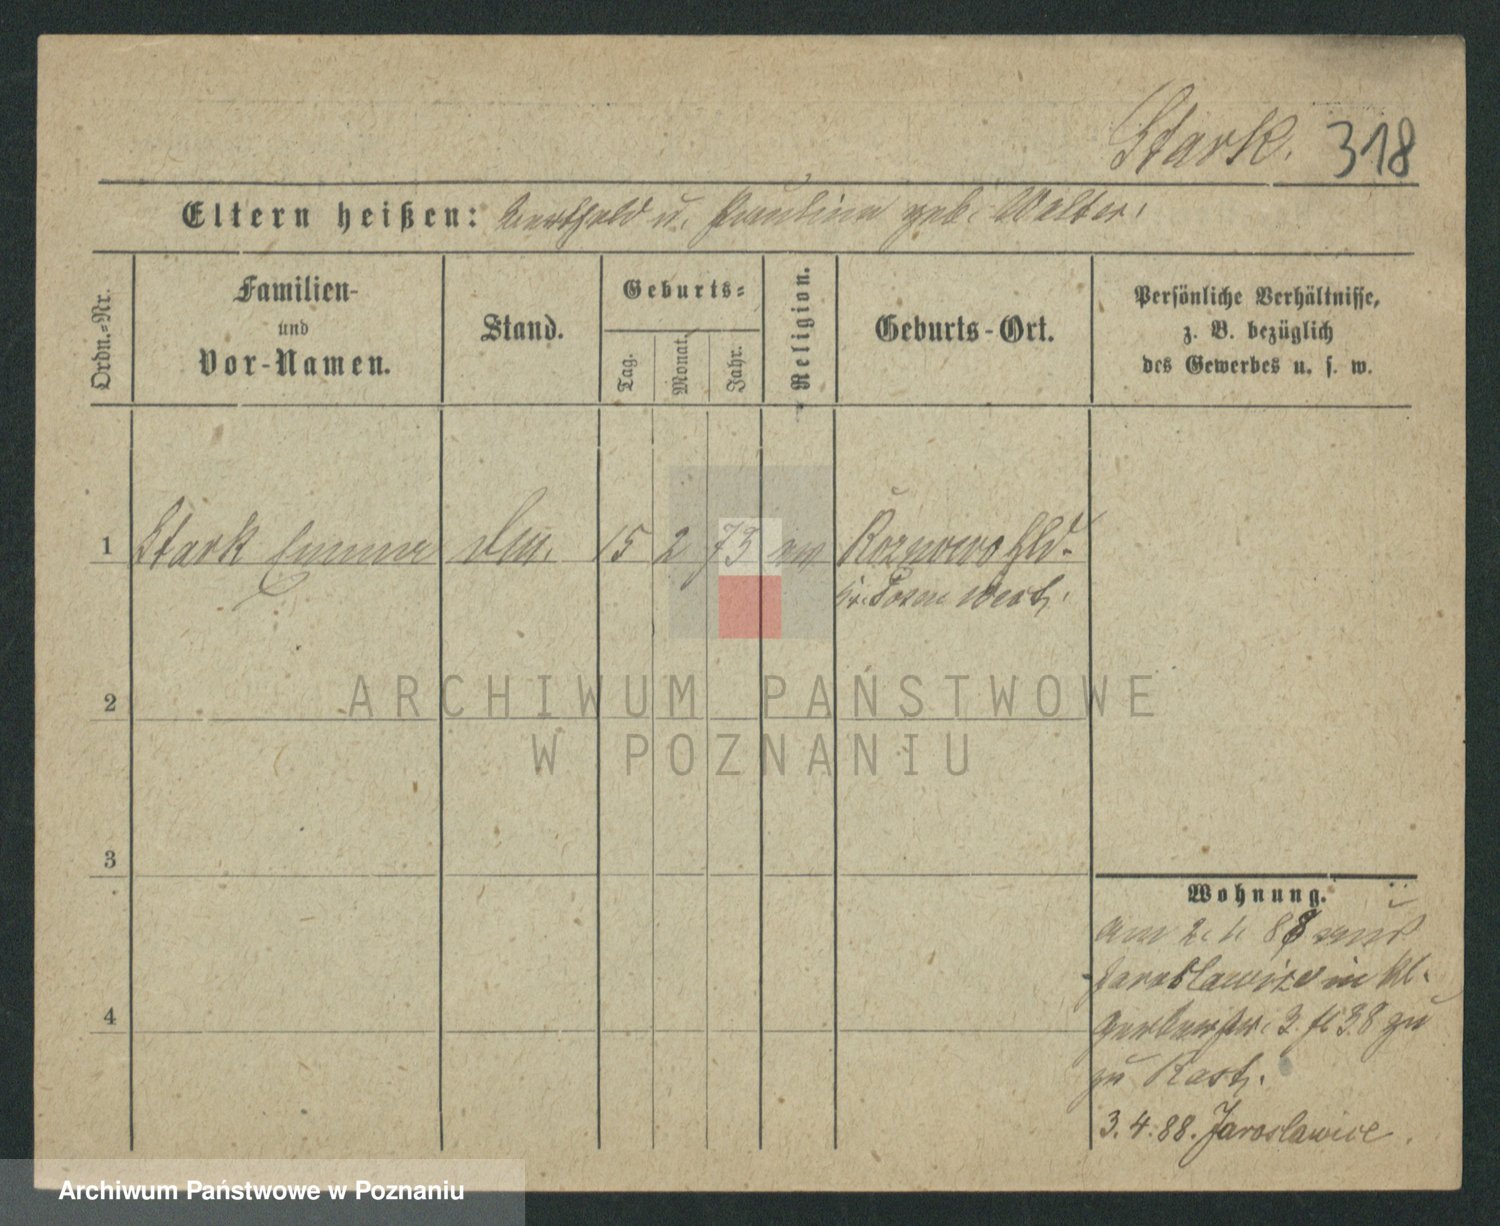 Stark. 318
Eltern heißen: Berthold u. Paulina geb. Walter.
Ordn.-Nr.
Familien-
und
Vor-Namen.
Stand.
Geburts-
Tag.
Monat.
Jahr.
Religion.
Geburts-Ort.
Persönliche Verhältnisse,
z. B. bezüglich
des Gewerbes u. s. w.
1 Stark Emma 15 2 73 ev Rożnowo Hld.
Kr. Posen West.
2
ARCHIWUM PAŃSTWOWE
W POZNANIU
3
Wohnung.
am 2. 88 aus
Jaroslawice in Kl.
Gerberstr. 3. 38 zu
4
zu
3.4.88. Jaroslawice.
Archiwum Państwowe w Poznaniu